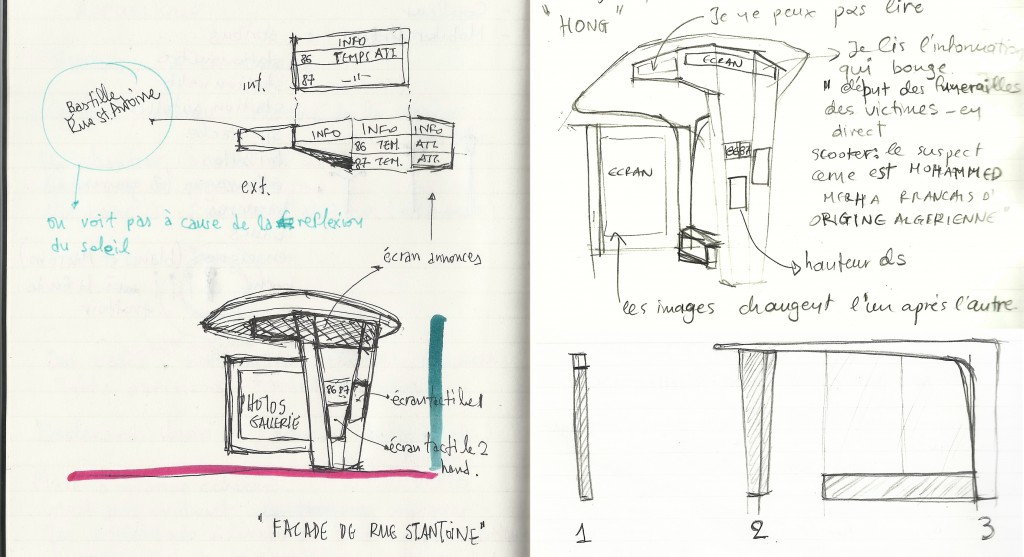 INFO
86 TEMPS ATT.
87 -11-
int.
Bastille
Rue St. Antoine
INFO INFO INFO
86 TEM. ATT.
87 TEM. ATT.
ext.
on voit pas à cause de la reflexion
du soleil
écran annonces
86 87
PHOTOS
GALLERIE
écran tactile 1
écran tactile 2
hand.
"FACADE DE RUE ST ANTOINE"
"
HONG"
Je ne peux pas lire
ECRAN
Je lis l'information
qui bouge
"début des funerailles
des victimes - en
direct
scooter: le suspect
cerne est MOHAMMED
MERHA FRANCAIS D'
ORIGINE ALGERIENNE"
86 87
ECRAN
hauteur ds
Les images changent l'un après l'autre
1 2 3